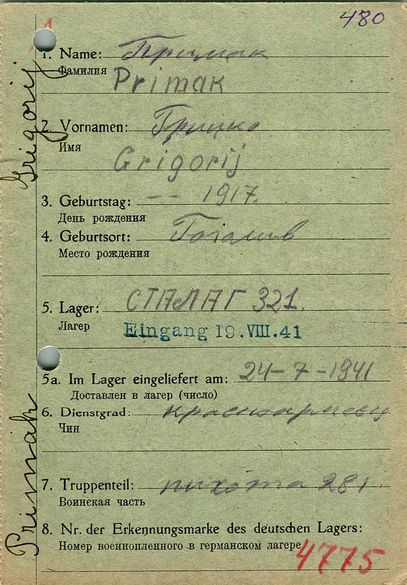 480
1. Name: Примак
Фамилия Primak
2. Vornamen: Грицко
Имя
Grigorij
3. Geburtstag: -- 1917
День рождения
4. Geburtsort:
Место рождения
5. Lager: СТАЛАГ 321.
Лагер
Eingang 19. VIII. 41
5a. Im Lager eingeliefert am: 24-7-1941
Доставлен в лагер (число)
6. Dienstgrad: красноармеец
Чин
7. Truppenteil: пихота 281
Воинская часть
8. Nr. der Erkennungsmarke des deutschen Lagers:
Номер военнопленного в германском лагере
4775
Grigorij
Primak